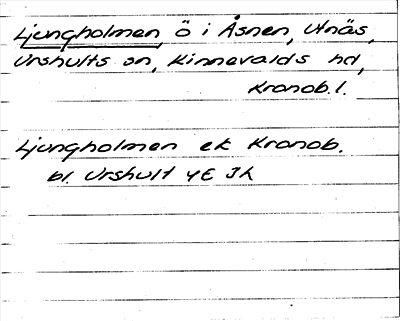 Ljungholmen, ö i Åsnen, Utnäs,
Urshults sn, Kinnevalds hd,
Kronob. l.
Ljungholmen ek Kronob.
bl. Urshult 4E Jh